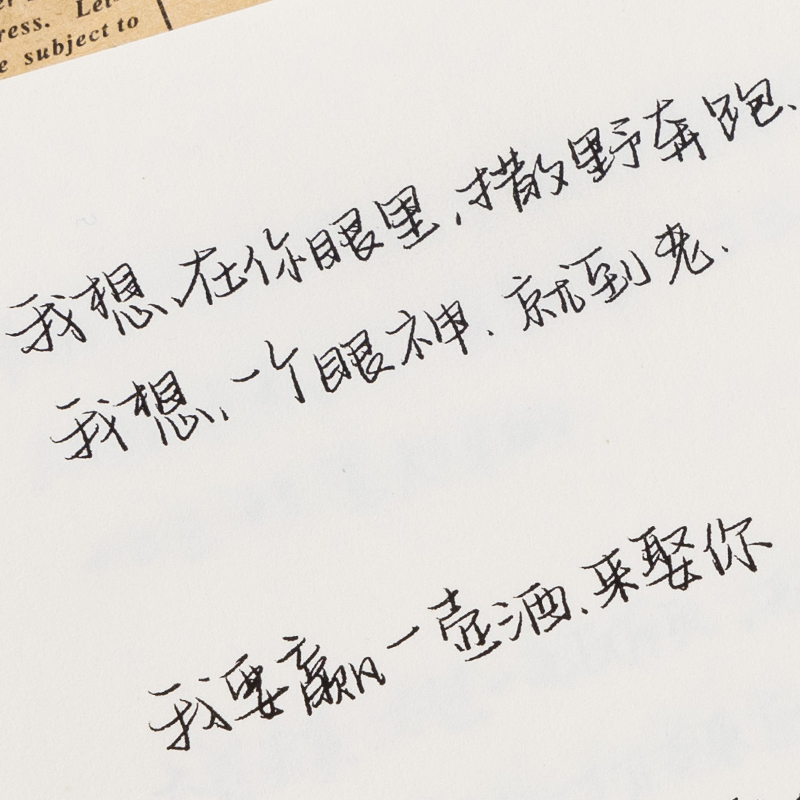 ress. Let
e subject to
我想、在你眼里，撒野奔跑、
我想、一个眼神、就到老、
我要赢一壶酒、来娶你